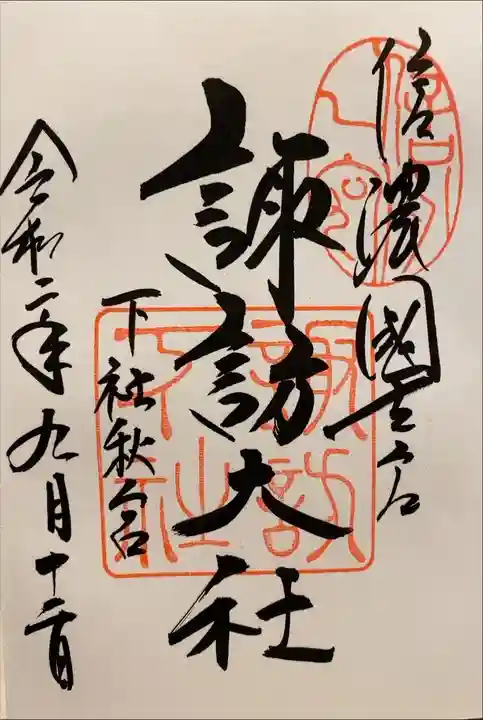 信濃國一之宮
諏訪大社
下社秋宮
令和二年九月十二日